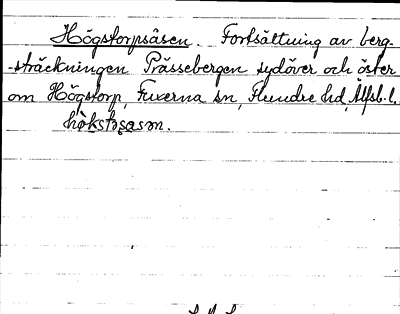 Högstorpsåsen. Fortsättning av berg-
-sträckningen Prässebergen sydöver och öster
om Högstorp, Fuxerna sn, Flundre hd, Älfsb. l.